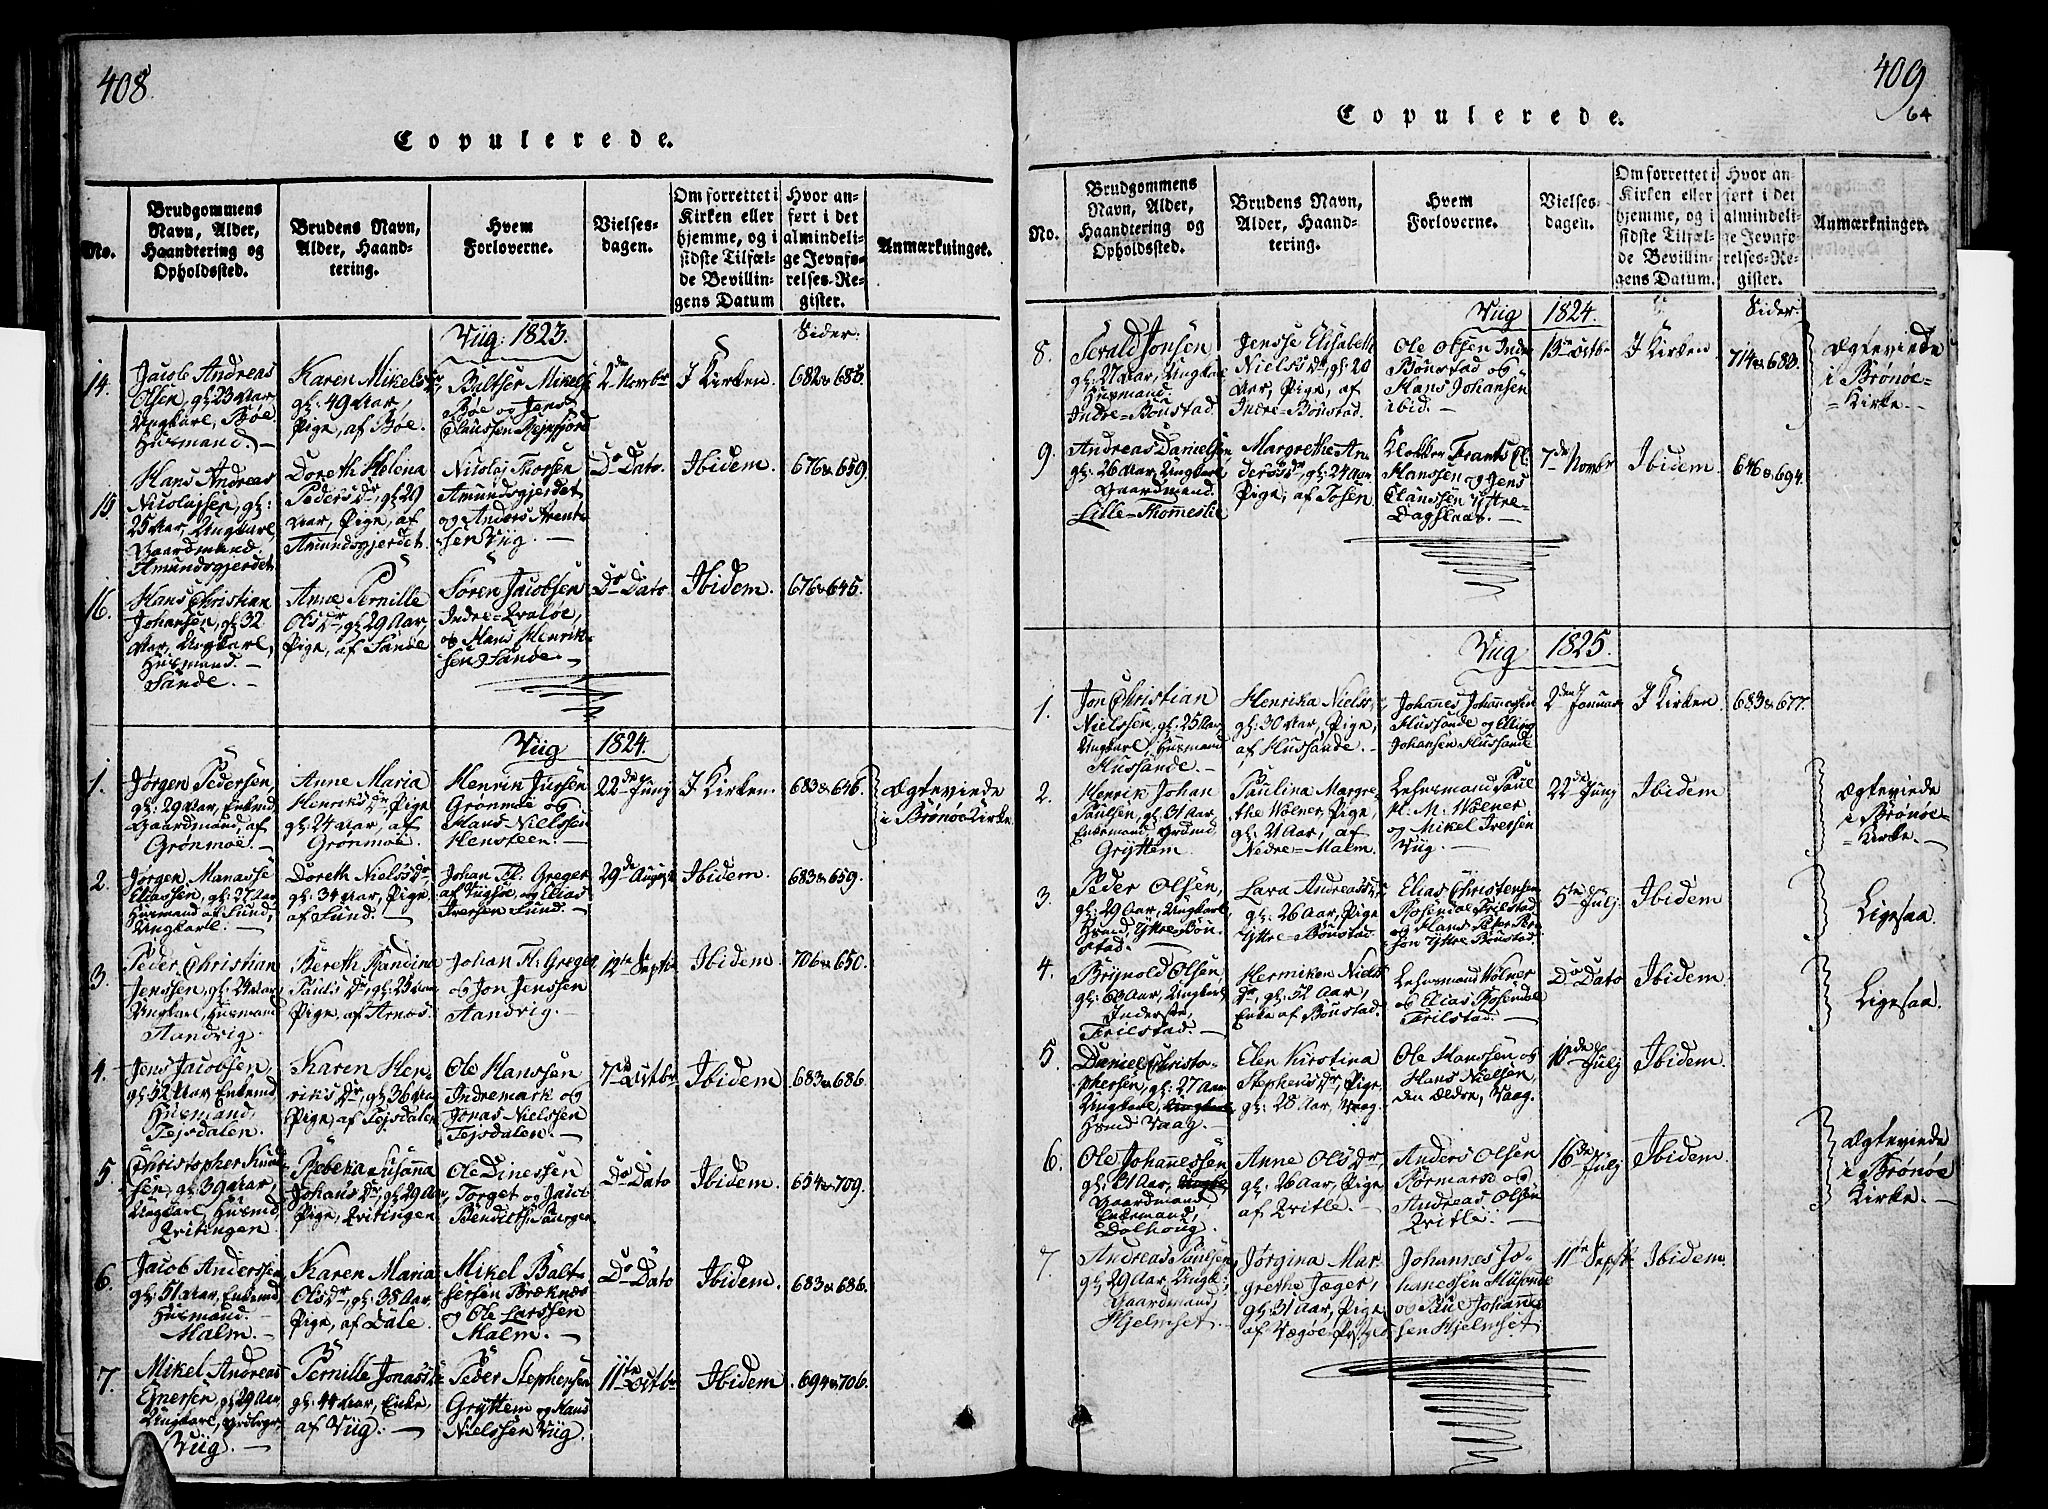 408
Copulerede.
No.
Brudgommens
Navn, Alder,
Haandtering og
Opholdssted.
Brudens Navn,
Alder, Haand-
tering.
Hvem
Forloverne.
Vielses-
dagen.
Om forrettet i
Kirken eller
hjemme, og i
sidste Tilfæl-
de Bevillin-
gens Datum
Hvor an-
ført i det
almindeli-
ge Jevnfø-
relses-Re-
gister.
Anmærkninger.
Viig: 1823.
Sider:
14.
Jacob Andreas
Olsen, gl: 23 Aar,
Ungkarl, Bøe
Huusmand. –
Karen Mikelsdr,
gl: 49 Aar,
Pige, af Bøe.
Baltser Mikels
Bøe og Jens
Claussen
2de Novbr
I Kirken.
682 & 685.
15.
Hans Andreas
Nicolajsen, gl:
25 Aar, Ungkarl,
Gaardmand.
Amundsgjerdet.
Doreth Helena
Pedersdr, gl: 29
Aar, Pige, af
Amundsgjerdet.
Nicolaj Thorsen
Amundsgjerdet
og Anders Arent-
sen Viig. –
Do Dato.
Ibidem.
676 & 659.
16.
Hans Christian
Johansen, gl: 32
Aar, Ungkarl,
Huusmand. –
Sande. –
Anne Pernille
Olsdr, gl: 29 Aar
Pige, af Sande
Søren Jacobsen
Indre-Qvaløe,
og Hans Henrik-
sen Sande. –
Do Dato
Ibidem.
676 & 645.
Viig 1824.
1.
Jørgen Pedersen,
gl: 29 Aar, Enkemd
Gaardmand, af
Grønmoe. –
Anne Maria
Henriksdr, Pige
gl: 24 Aar, af
Grønmoe.
Henrik Jürssen
Grønmoe og
Hans Nielssen
Hensteen. –
22de Junj
I Kirken.
683 & 646.
Ægteviede
i Brønøe Kirke.
2.
Jørgen Manasse
Eliassen, gl: 27 Aar
Huusmand af Sund,
Ungkarl. –
Doreth Nielsdr
gl: 34 Aar, Pige
af Sund. –
Johan Fl: Greger
af Viigsøe, og Elias
Iversen Sund. –
29de August
Ibidem.
683 & 659.
3.
Peder Christian
Jenssen, gl: 24 Aar
Ungkarl, Huusmand
Aandvig.
Bereth Randine
Paulsdr, gl: 23 Aar
Pige, af Arnøs.
Johan Fl: Greger
og Jon Jenssen
Aandvig. –
12te Septbr
Ibidem.
706 & 650.
4.
Jens Jacobsen,
gl: 52 Aar Enkemd
Huusmand,
Tejsdalen.
Karen Hen-
riksdr, gl: 36 Aar
Pige, af Tejsdalen
Ole Hanssen
Indremark og
Jonas Nielssen
Tejsdalen. –
7de Octbr
Ibidem.
683 & 686.
5.
Christopher Knud-
sen, gl: 39 Aar,
Ungkarl Huusmd,
Qvitingen
Rebeka Susanna
Johansdr, gl: 29 Aar,
Pige, Qvitingen
Ole Dinessen
Torget og Jacob
Do Dato
Ibidem.
654 & 709.
6.
Jacob Anderssen
gl: 51 Aar, Enkemd,
Huusmand. –
Malm. –
Karen Maria
Olsdr, gl: 38 Aar,
Pige, af Dale.
Mikel Balt-
sersen Bræknæs
og Ole Larssen
Malm. –
Do Dato
Ibidem.
683 & 686.
7.
Mikel Andreas
Ejnersen, gl: 29 Aar
Viig. –
Pernille Jonasdr
gl: 44 Aar, Enke,
af Viig. –
Peder Stephensen
Gryttem og Hans
Nielssen Viig.
11te Octbr
Ibidem.
694 & 706.
409
64
Copulerede.
No.
Brudgommens
Navn, Alder,
Haandtering og
Opholdssted.
Brudens Navn,
Alder, Haand-
tering.
Hvem
Forloverne.
Vielses-
dagen.
Om forrettet i
Kirken eller
hjemme, og i
sidste Tilfæl-
de Bevillin-
gens Datum.
Hvor an-
ført i det
almindeli-
ge Jevnfø-
relses-Re-
gister.
Anmærkninger.
Viig 1824.
Sider:
8.
Serald Jonsen,
gl: 27 Aar, Ungkarl
Huusmand
Indre-Bønstad.
Jensse Elisabeth
Nielsdr, gl: 20
Aar, Pige, af
Indre-Bønstad.
Ole Olsen Indre
Bønstad og
Hans Johansen
ibid. –
13de Octbr
I Kirken.
714 & 683.
Ægteviede
i Brønøe-
Kirke. –
9.
Andreas Danielsen
gl: 26 Aar, Ungkarl
Gaardmand.
Margrethe An-
dersdr, gl: 24 Aar
Pige, af Tosen.
Klokker Frants Cl:
Hanssen og Jens
Claussen Ystre-
Dagslaat. –
7de Novbr
Ibidem.
646 & 694.
Viig 1825.
1.
Jon Christian
Nielssen, gl: 25 Aar
Ungkarl, Huusmand
Hussande. –
Henrika Nielsdr
gl: 30 Aar, Pige,
af Hussande. –
Johanes Johannessen
Hussande og Elling
Johansen Hussande
2den Januar
I Kirken.
683 & 677.
2.
Henrik Johan
Paulsen, gl: 31 Aar
Enkemand, Grdmd
Gryttem.
Paulina Margre-
the Wolner, Pige,
gl: 21 Aar, af
Nedre-Malm.
Lehnsmand Paul
H. M: Wolner
og Mikel Iversen
Viig. –
22de Junj
Ibidem
Ægteviede
i Brønøe-
Kirke. –
3.
Peder Olsen,
gl: 29 Aar, Ungkarl
Huusmd, Yttre Bøn-
stad. –
Lara Andreasdr
gl: 26 Aar, Pige
Yttre-Bønstad.
Elias Christensen
Rosendal Trilstad
og Hans Peter Pe-
sen Yttre Bønstad.
5te Julj
Ibidem
Ligesaa.
4.
Brijnold Olsen,
gl: 63 Aar, Ungkarl
Inderste,
Trilstad. –
Hermiken Niels
dr, gl: 52 Aar,
Enke af Bønstad.
Lehnsmand Wolner
og Elias Rosendal
Trilstad. –
Do Dato
Ibidem.
Ligesaa.
5.
Daniel Christo-
phersen, gl: 27 Aar
Ungkarl, Ungkarl
Huusmd Vaag. –
Elen Kirstina
Stephensdr, Pige
gl: 28 Aar, Vaag.
Ole Hanssen og
Hans Nielsen,
den Ældre, Vaag.
10de Julj
Ibidem.
6.
Ole Johannessen
gl: 31 Aar, Ungkarl
Gaardmand,
Enkemand,
Dalhoug.
Anne Olsdr,
gl: 26 Aar, Pige
af Qvitle. –
Anders Olsen
Rørmark og
Andreas Olsen
Qvitle. –
16de Julj
Ibidem.
Ægteviede
i Brønøe
Kirke. –
7.
Andreas Paulsen,
gl: 29 Aar, Ungk:
Gaardmand,
Hjelmset. –
Jørgina Mar-
grethe Jæger,
gl: 31 Aar, Pige
af Vægøe
Johannes Jo-
hanessen Husande
og Paul Johanne-
sen Hjelmset. –
11te Septbr
Ibidem.